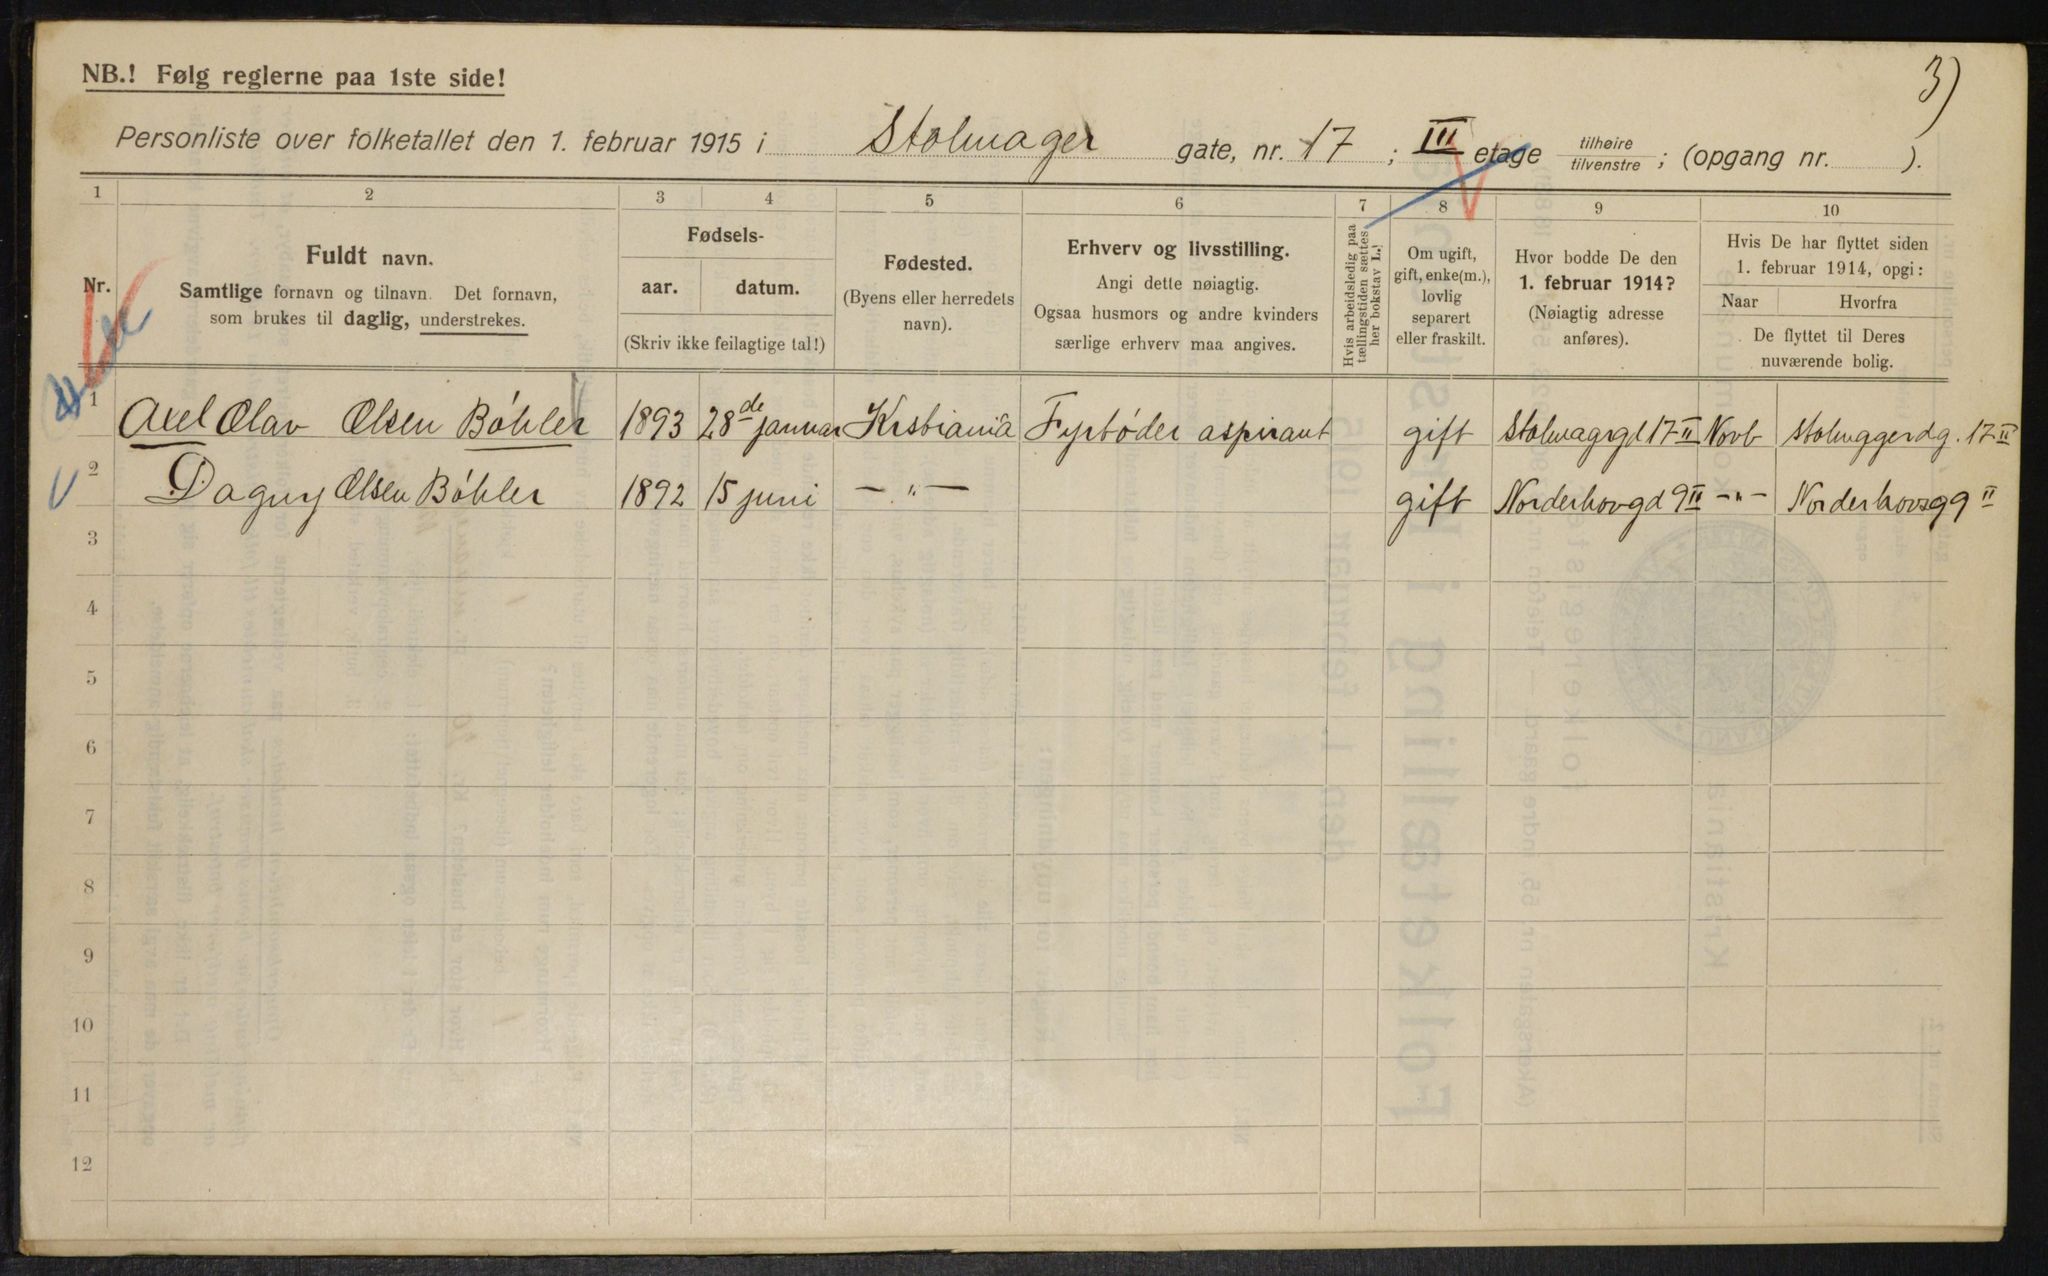 3)
NB.! Følg reglerne paa 1ste side!
Personliste over folketallet den 1. februar 1915 i Stolmager gate, nr. 17 ; III etage tilhøire / tilvenstre ; (opgang nr. ).
1 2 3 4 5 6 7 8 9 10
Nr.
Fuldt navn.
Samtlige fornavn og tilnavn. Det fornavn,
som brukes til daglig, understrekes.
Fødsels-
aar. datum.
(Skriv ikke feilagtige tal!)
Fødested.
(Byens eller herredets
navn).
Erhverv og livsstilling.
Angi dette nøiagtig.
Ogsaa husmors og andre kvinders
særlige erhverv maa angives.
Hvis arbeidsledig paa
tællingstiden sættes
her bokstav L.!
Om ugift,
gift, enke(m.),
lovlig
separert
eller fraskilt.
Hvor bodde De den
1. februar 1914?
(Nøiagtig adresse
anføres).
Hvis De har flyttet siden
1. februar 1914, opgi:
Naar Hvorfra
De flyttet til Deres
nuværende bolig.
1 Axel Olav Olsen Böhler 1893 28de januar Krstiania Fyrbøder aspirant gift Stolmagrgd 17 II Novb Stolmggerdg. 17 II
2 Dagny Olsen Böhler 1892 15 juni — " — gift Norderhovgd 9 II - " - Norderhovsg 9 II
3
4
5
6
7
8
9
10
11
12